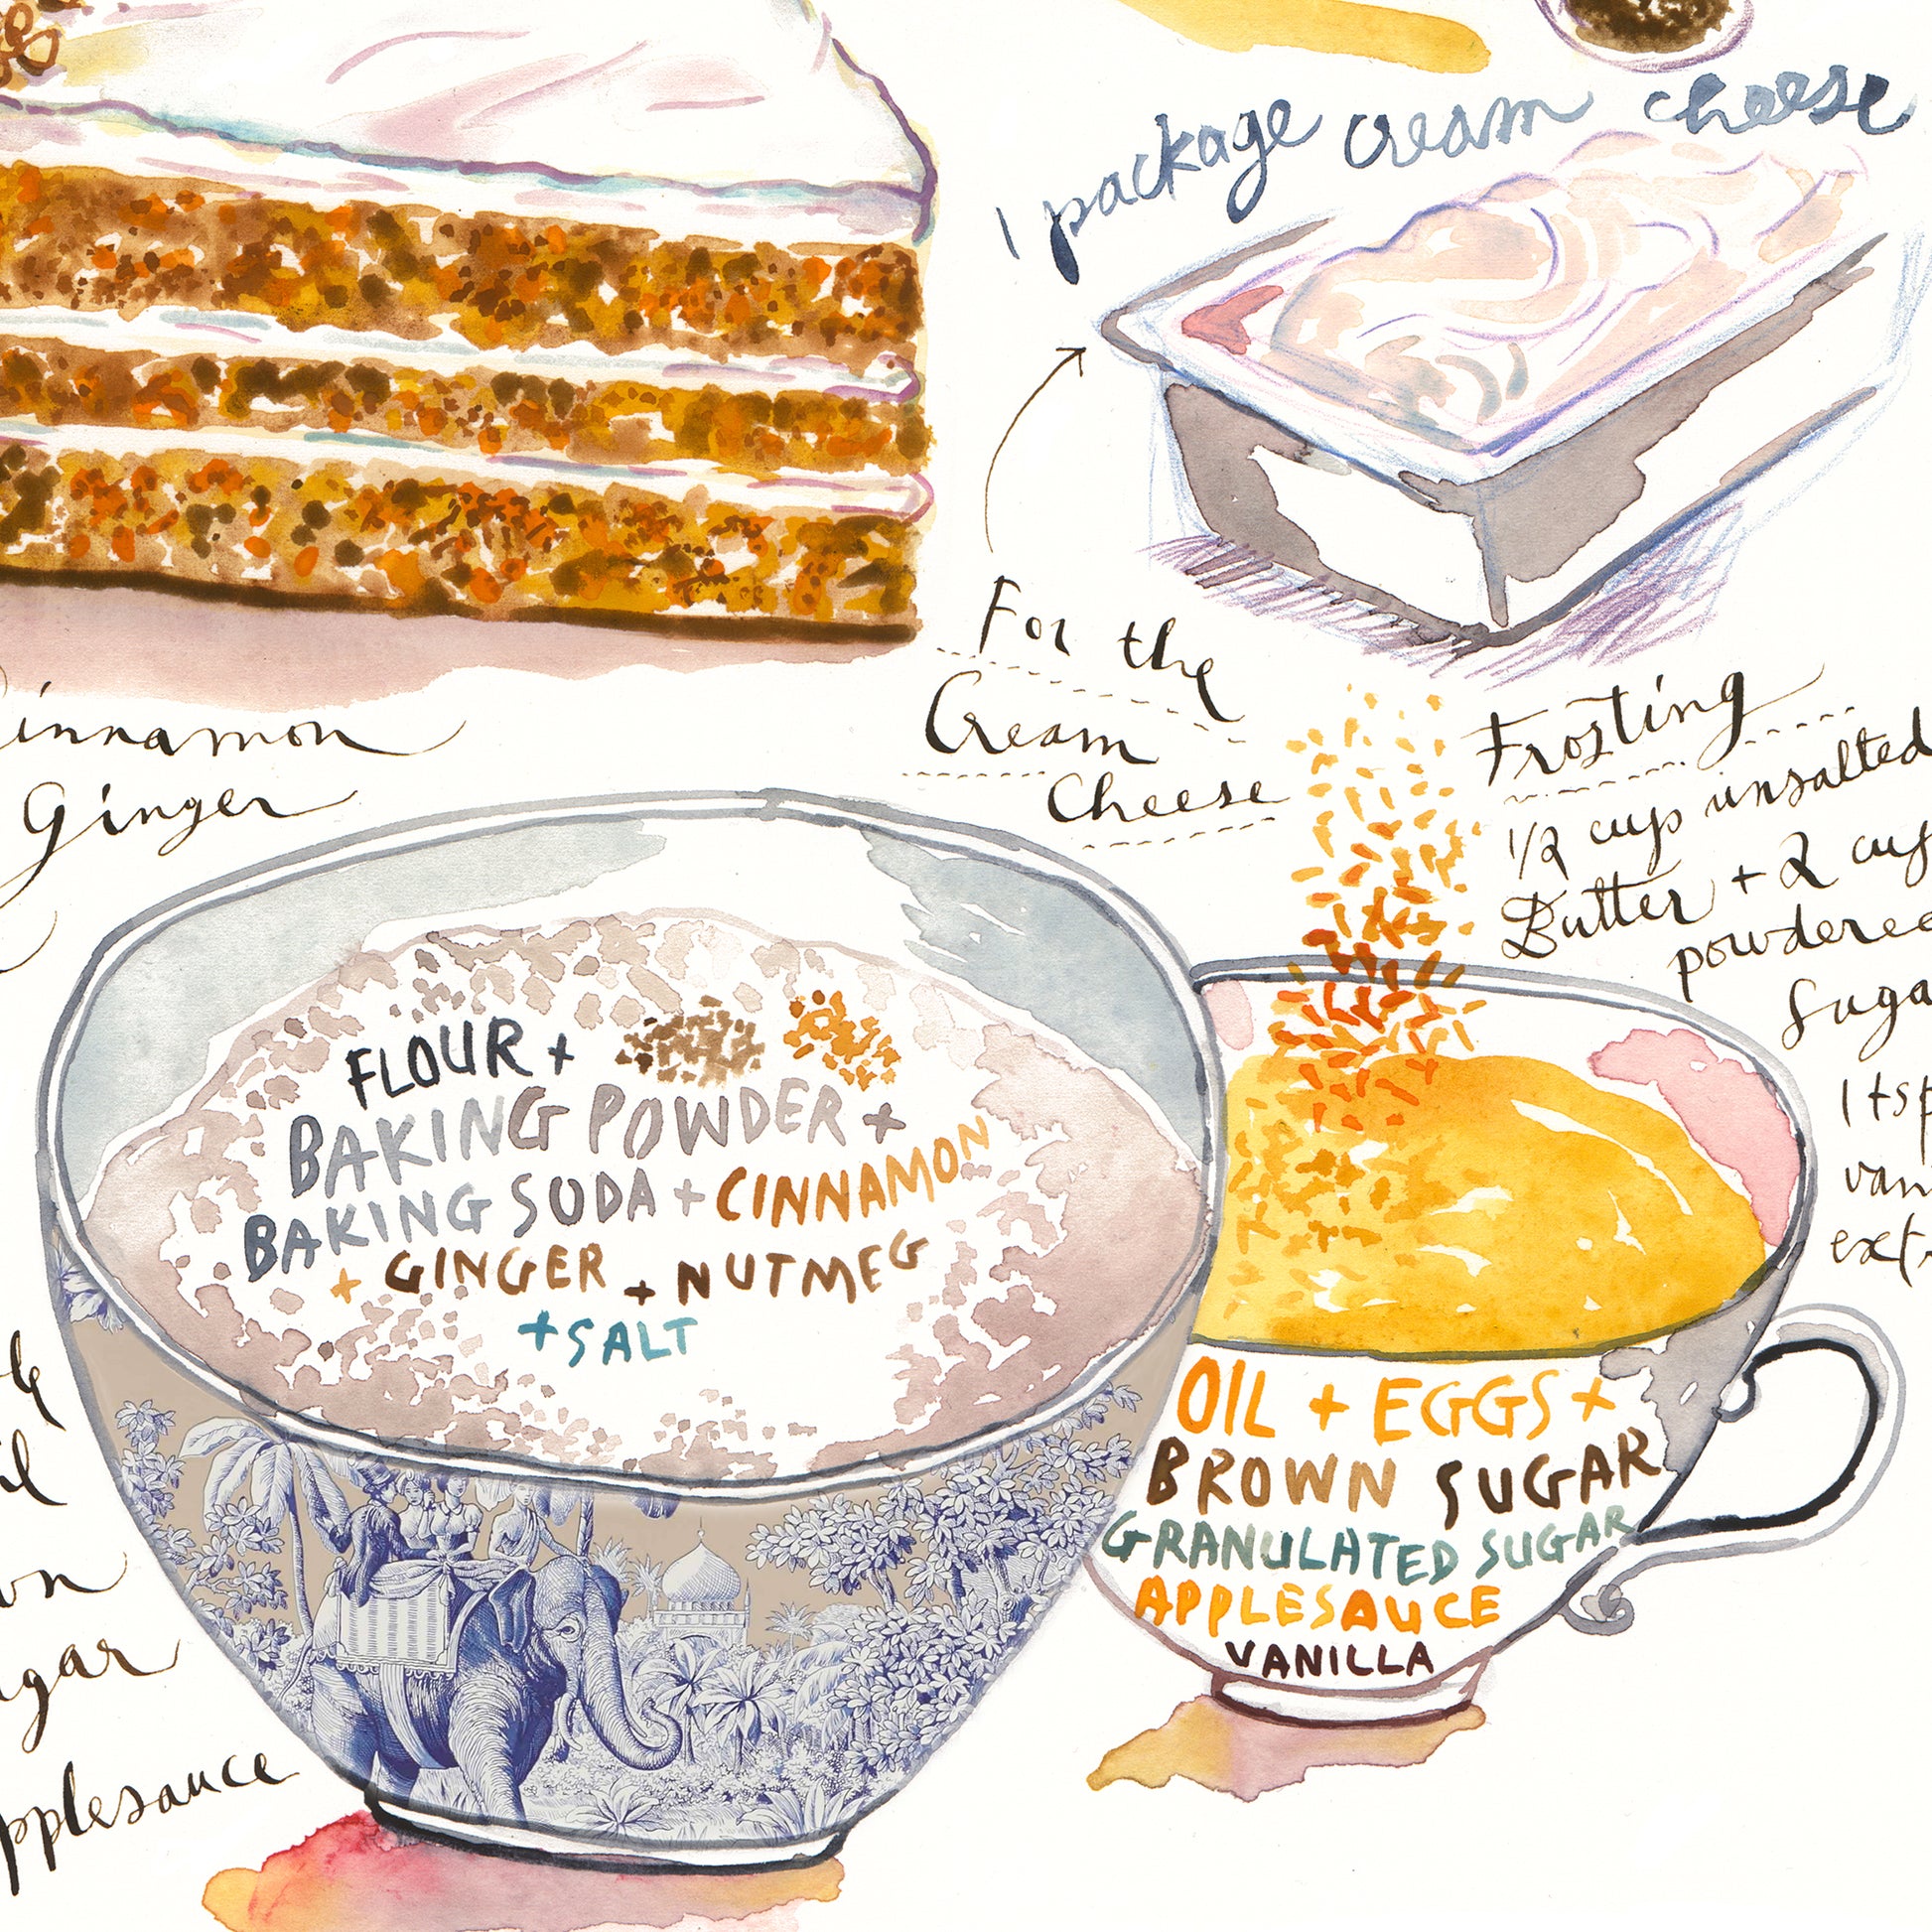 1 package cream cheese
For the
Cream
Cheese
Frosting
1/2 cup unsalted
Butter + 2 cup
powdered
Suga
1 tsp
van
extr
innamon
Ginger
FLOUR +
BAKING POWDER +
BAKING SODA + CINNAMON
+ GINGER + NUTMEG
+ SALT
OIL + EGGS +
BROWN SUGAR
GRANULATED SUGAR
APPLESAUCE
VANILLA
il
wn
gar
pplesauce